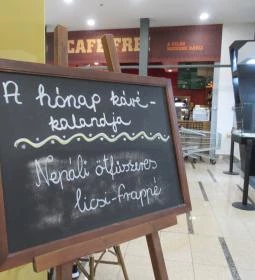 CAFE FREI
A hónap kávé-
kalandja
Nepáli ötfűszeres
licsi-frappé